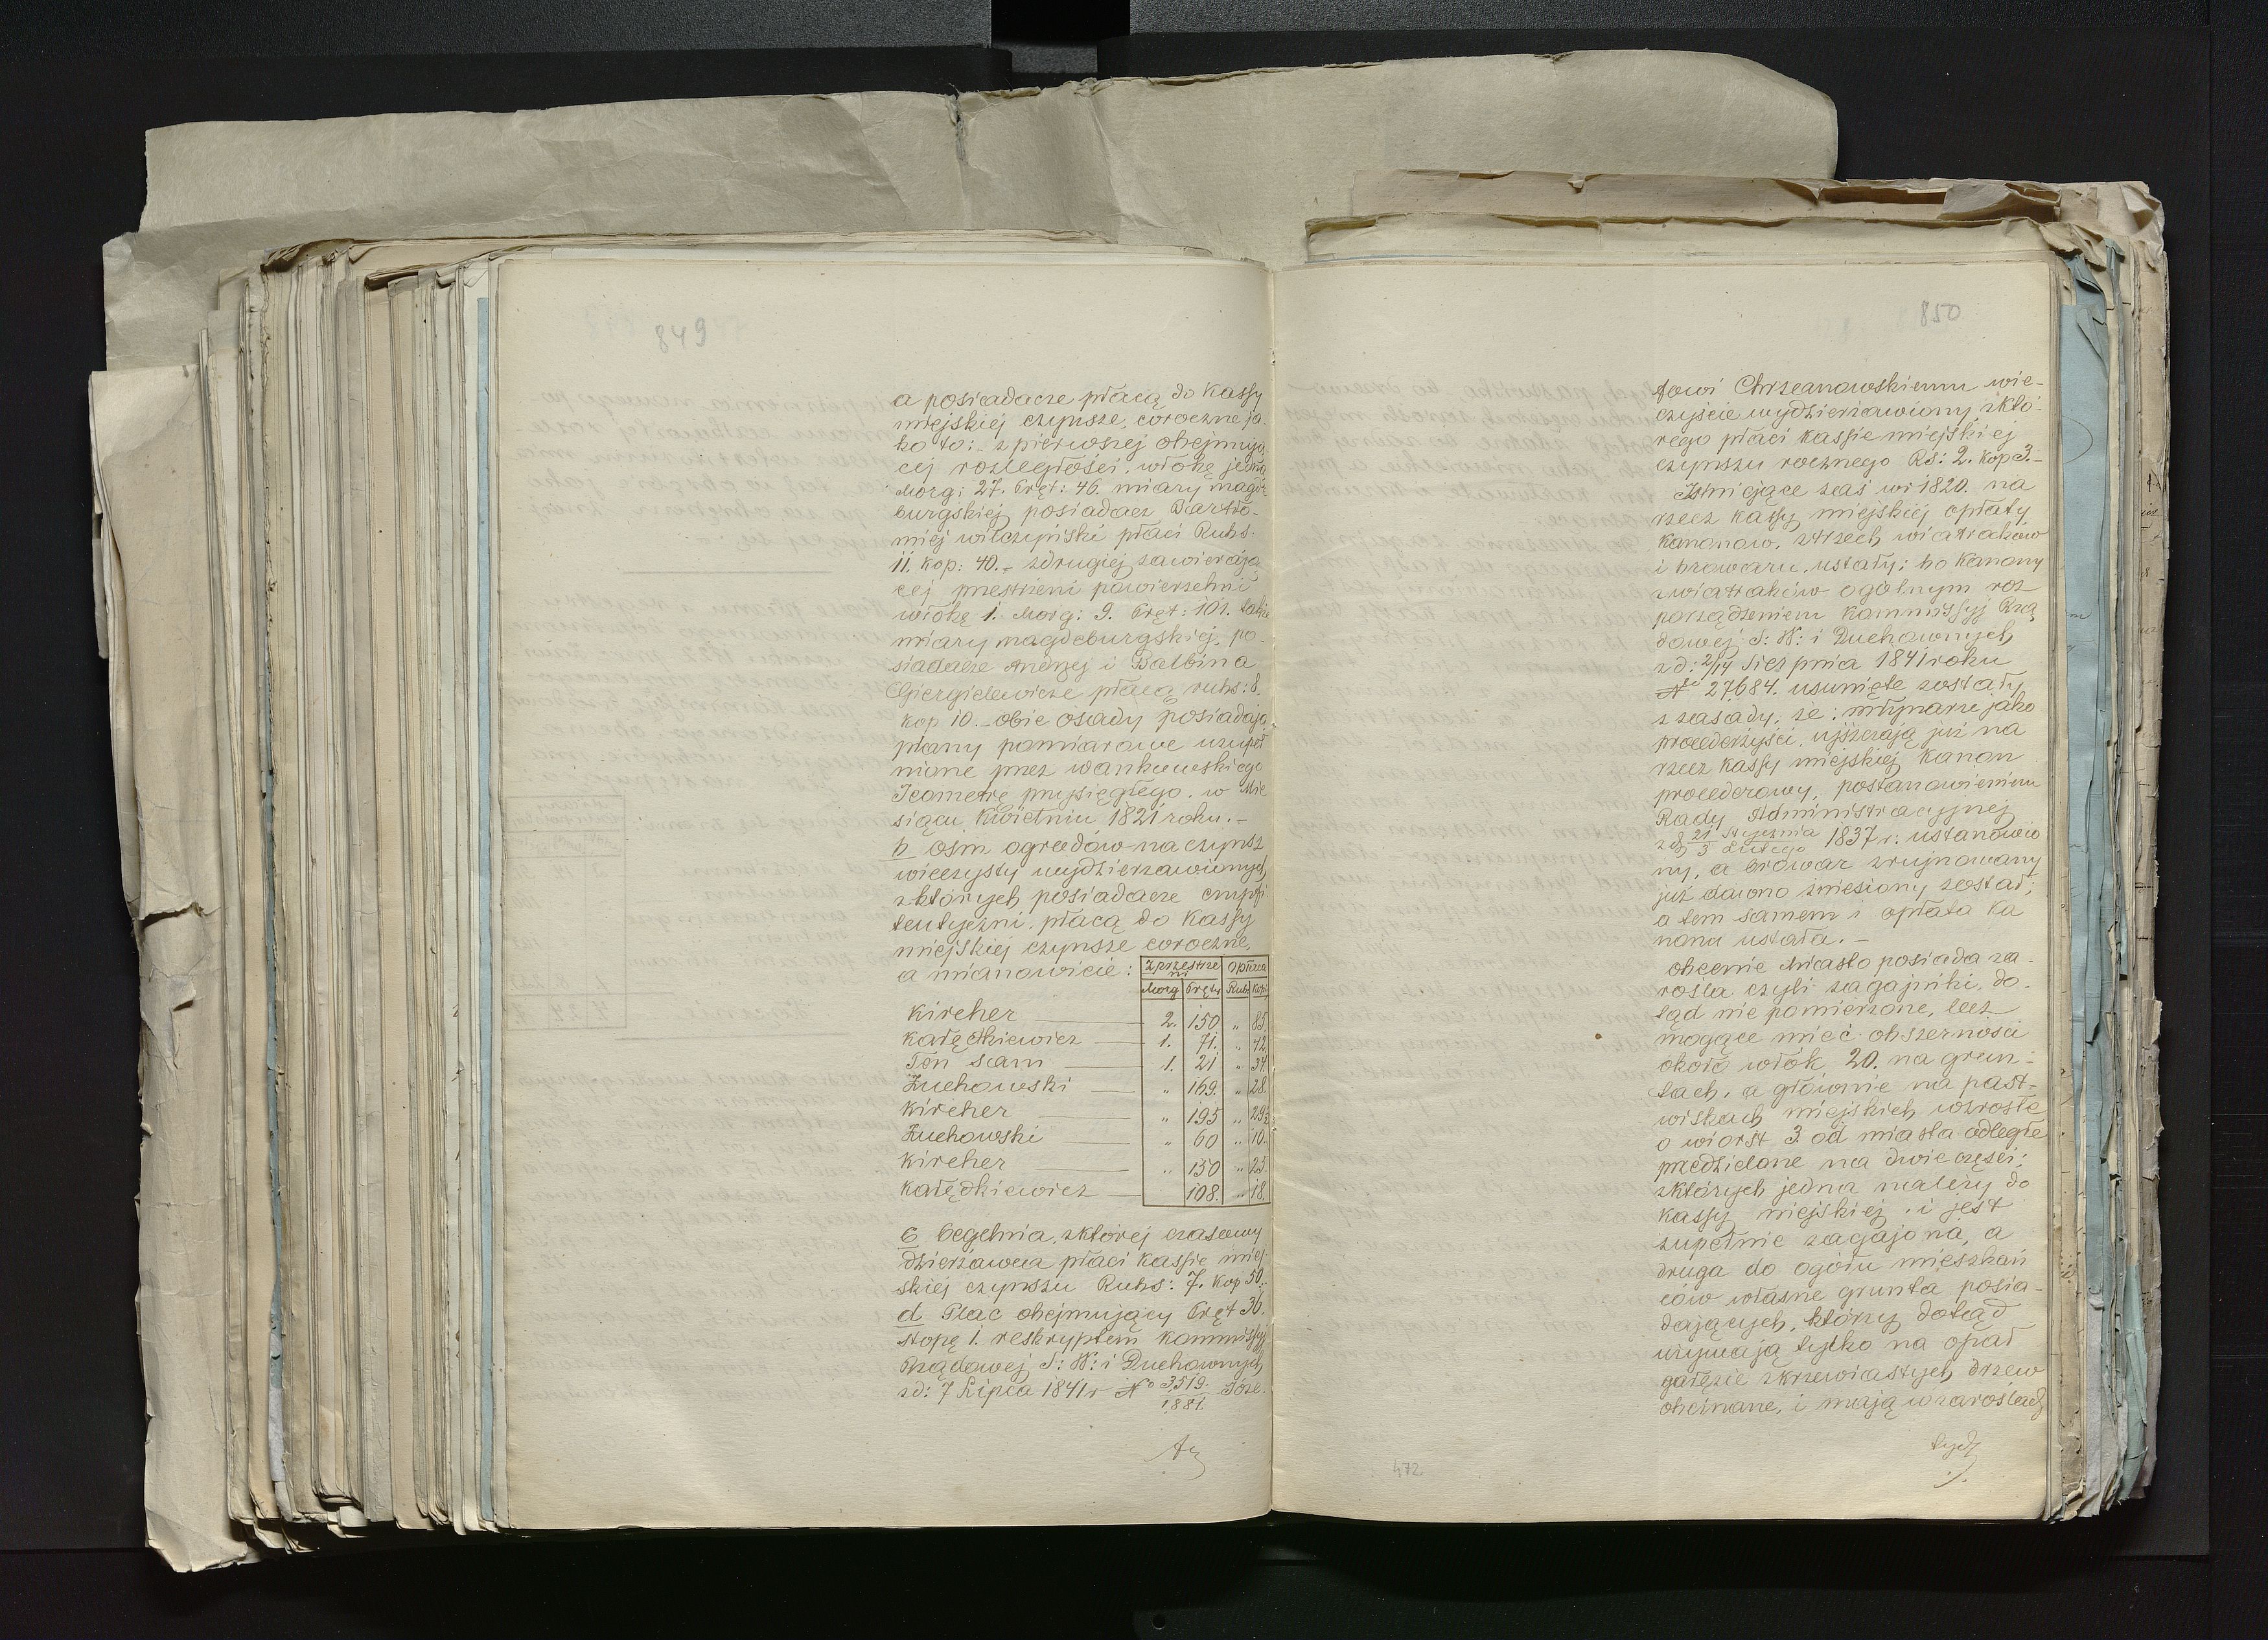 849
a posiadacze płacą do Kassy
miejskiej czynsze, coroczne ja-
ko to: z pierwszej obejmują
cej rozległości. włokę jedną
Morg: 27. Pręt: 46. miary magde
burgskiej posiadacz Bartło-
miej Wilczyński płaci Rubs:
11. Kop: 40.- z drugiej zawierają
cej przestrzeni powierzchni
włokę 1. Morg: 9. Pręt: 101. takiż
miary magdeburgskiej, po-
siadacze Andrzej i Balbina
Giergielewicze płacą rubs: 8.
kop 10.- obie osady posiadają
plany pomiarowe uzupeł
nione przez Wańkowskiego
Jeometrę przysięgłego. w Mie
siącu Kwietniu 1821 roku.-
b ośm ogrodów na czynsz
wieczysty wydzierżawionych
z których posiadacze emfi
teutyczni, płacą do Kassy
miejskiej czynsze coroczne,
a mianowicie:
z przestrze opłaca
ni
Morg Pręty Rubs Kop
Kircher 2. 150 " 85.
Kałędkiewicz 1. 71. " 42.
Ten sam 1. 21 " 34.
Żuchowski " 169. " 28.
Kircher " 195 " 29½
Żuchowski " 60 " 10.
Kircher " 150 " 25.
Kałędkiewicz 108. " 18.
c Cegelnia, z której czasowy
dzierżawca płaci Kassie miej
skiej czynszu Rubs: 7. Kop 50.
d Plac obejmujący Pręt 36.
stopę 1. reskryptem Kommissyj
Rządowej S: W: i Duchownych
z d: 7 Lipca 1841 r No 3519./1881. Józe-
850
fowi Chrzanowskiemu wie-
czyście wydzierżawiony, z któ-
rego płaci Kassie miejskiej
czynszu rocznego Rs: 2. kop 3.-
Istniejące zaś w r 1820. na
rzecz Kassy miejskiej opłaty
Kanonów, z trzech wiatraków
i browaru ustały; bo Kanony
z wiatraków ogólnym roz
porządzeniem Kommissyj Rzą
dowej S: W: i Duchownych
z d: 2/14 Sierpnia 1841 roku
No 27684. usunięte zostały
z zasady, że: młynarze jako
procederzyści, ujszczają już na
rzecz Kassy miejskiej Kanon
procederowy, postanowieniem
Rady Administracyjnej
z d 21 Stycznia/3 Lutego 1837 r: ustanowio
ny, a browar zrujnowany
już dawno zniesiony został;
a tem samem i opłata ka
nonu ustała.-
obecnie Miasto posiada za-
rośla czyli zagajniki, do-
tąd nie pomierzone, lecz
mogące mieć obszerności
około włók 20. na grun-
tach, a głównie na past-
wiskach miejskich wzrosłe
o wiorst 3. od miasta odległe
przedzielone na dwie części;
z których jedna należy do
Kassy miejskiej, i jest
zupełnie zagajona, a
druga do ogółu mieszkań
ców własne grunta posia-
dających, którzy dotąd
używają tylko na opał
gałęzie z krzewiastych drzew
obcinane, i mają w zaroślach
tych
472